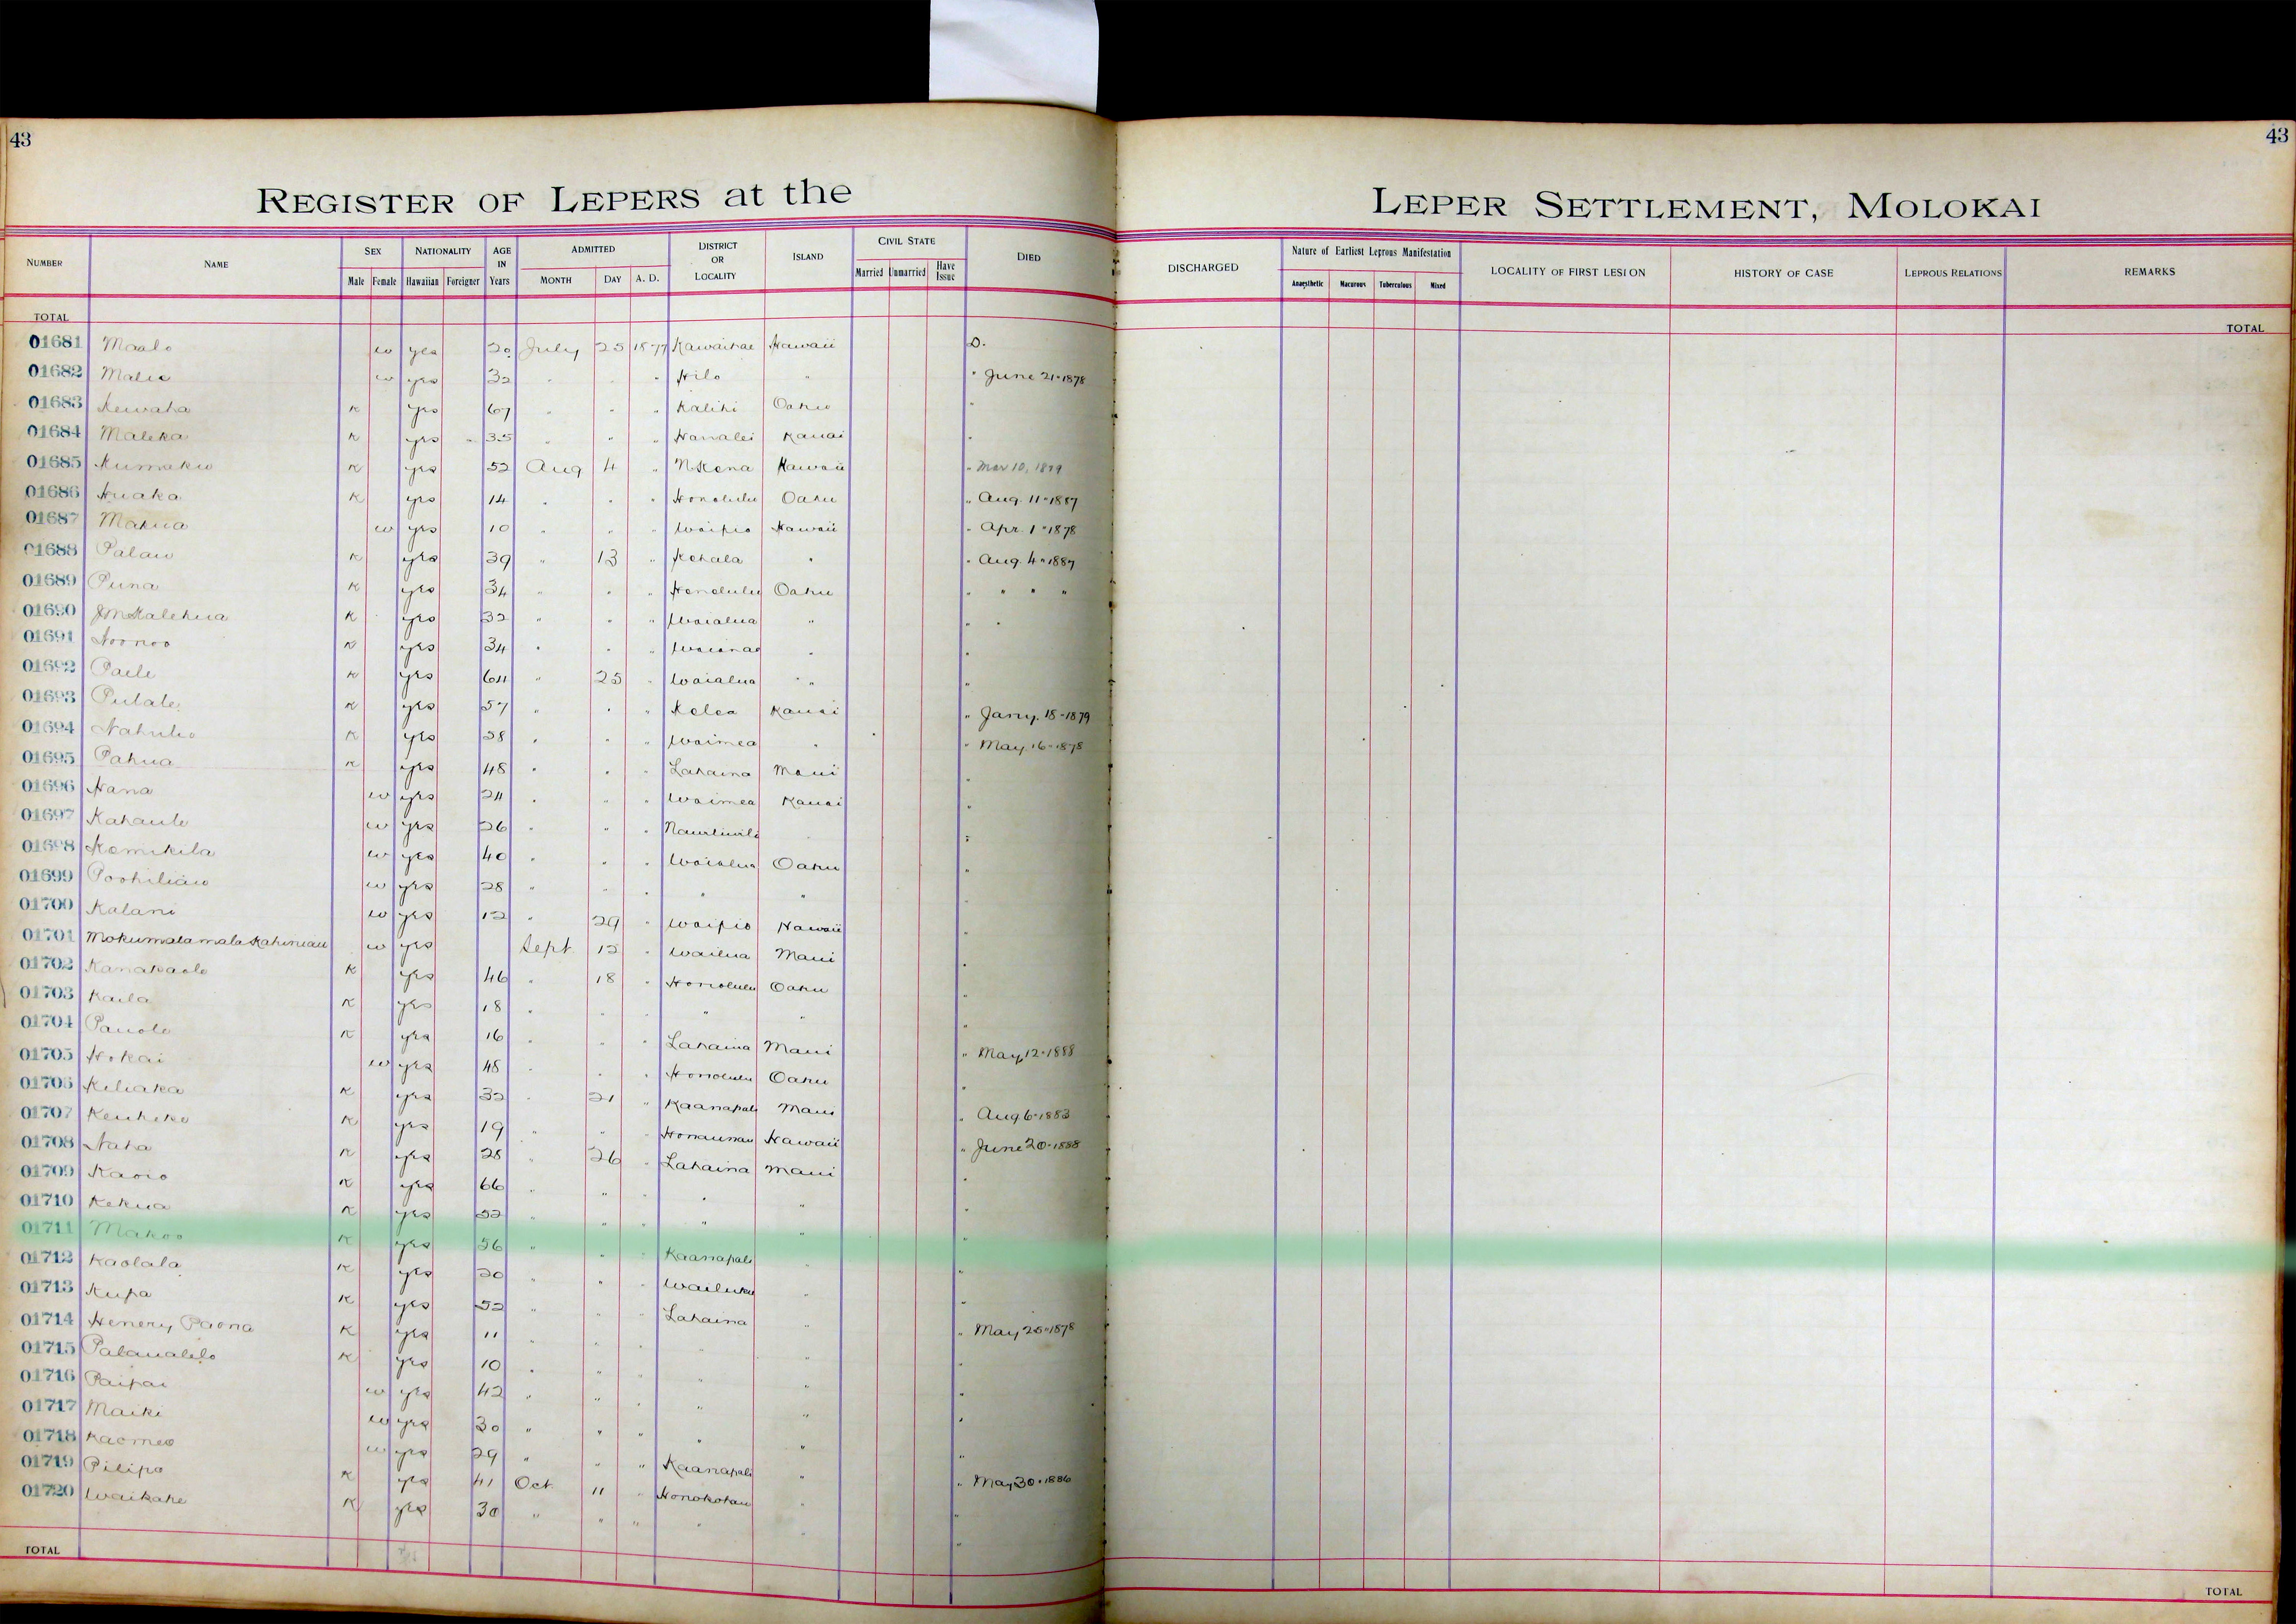 43
43
REGISTER OF LEPERS at the
LEPER SETTLEMENT, MOLOKAI
NUMBER NAME SEX Male Female NATIONALITY Hawaiian Foreigner AGE IN Years ADMITTED MONTH DAY A. D. DISTRICT OR LOCALITY ISLAND CIVIL STATE Married Unmarried Have Issue DIED
DISCHARGED Nature of Earliest Leprous Manifestation Anaesthetic Macurous Tuberculous Mixed LOCALITY OF FIRST LESION HISTORY OF CASE LEPROUS RELATIONS REMARKS
TOTAL
TOTAL
01681 Maalo w yes 20 July 25 1877 Kawaihae Hawaii D.
01682 w yes 32 " " " Hilo " " June 21-1878
01683 Kewaha K yes 67 " " " Kalihi Oahu "
01684 Maleka K yes 35 " " " Hanalei Kauai "
01685 Kumaku K yes 52 Aug 4 " N Kona Hawaii " Mar 10, 1879
01686 Huaka K yes 14 " " " Honolulu Oahu " Aug. 11-1887
01687 Makua w yes 10 " " " Waipio Hawaii " Apr. 1-1878
01688 Palau K yes 39 " 13 " Kohala " " Aug. 4-1887
01689 Puna K yes 34 " " " Honolulu Oahu " " " "
01690 J M Kalehua K yes 32 " " " Waialua " " "
01691 K yes 34 " " " Waianae " "
01692 Paele K yes 64 " 25 " Waialua " "
01693 Pulale K yes 57 " " " Kolea Kauai " Jany. 18-1879
01694 K yes 28 " " " Waimea " " May 16-1878
01695 Pahua K yes 48 " " " Lahaina Maui "
01696 Hana w yes 24 " " " Waimea Kauai "
01697 Kahaule w yes 26 " " " "
01698 Kamikila w yes 40 " " " Waialua Oahu "
01699 Poohiliau w yes 28 " " " " " "
01700 Kalani w yes 12 " 29 " Waipio Hawaii "
01701 Mokumalamala Kahiniau w yes Sept 12 " Wailua Maui "
01702 Kanakaole K yes 46 " 18 " Honolulu Oahu "
01703 Kaila K yes 18 " " " " " "
01704 Pauole K yes 16 " " " Lahaina Maui " May 12-1888
01705 Hokai w yes 48 " " " Honolulu Oahu "
01706 Keliaka K yes 32 " 21 " Kaanapali Maui " Aug 6-1883
01707 K yes 19 " " " Honaunau Hawaii " June 20-1888
01708 Naha K yes 28 " 26 " Lahaina Maui "
01709 K yes 66 " " " " " "
01710 Kekua K yes 52 " " " " " "
01711 Makoo K yes 56 " " " Kaanapali " "
01712 Kaolala K yes 20 " " " Wailuku " "
01713 Kupa K yes 52 " " " Lahaina " "
01714 Henery Paona K yes 11 " " " " " " May 25-1878
01715 Palaualelo K yes 10 " " " " " "
01716 Paipai w yes 42 " " " " " "
01717 Maiki w yes 30 " " " " " "
01718 Kaomea w yes 29 " " " Kaanapali " "
01719 Pilipo K yes 41 Oct 11 " Honokohau " " May 30-1886
01720 Waikahe K yes 30 " " " " " "
TOTAL
TOTAL